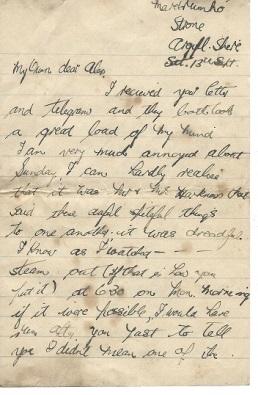 Strone
Argyll-Shire
Sat. 13th Sept.
My Own dear Alex,
I recieved your letter
and telegram and they both took
a great load of my mind
I am very much annoyed about
Sunday, I can hardly realise
that it was Mr & Mrs Harkness that
said those awful spiteful things
to one another. it was dreadful.
I know as I watched
steam out (if that is how you
put it) at 6-30 on Mon. morning
if it were possible, I would have
run after you just to tell
you I didn't mean one of them.